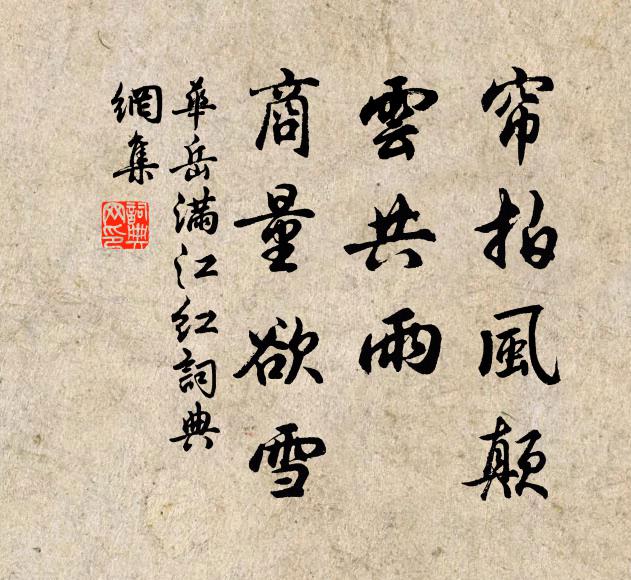 帘拍風顛
雲共雨
商量欲雪
華岳滿江紅詞典
網集
詞典
网印